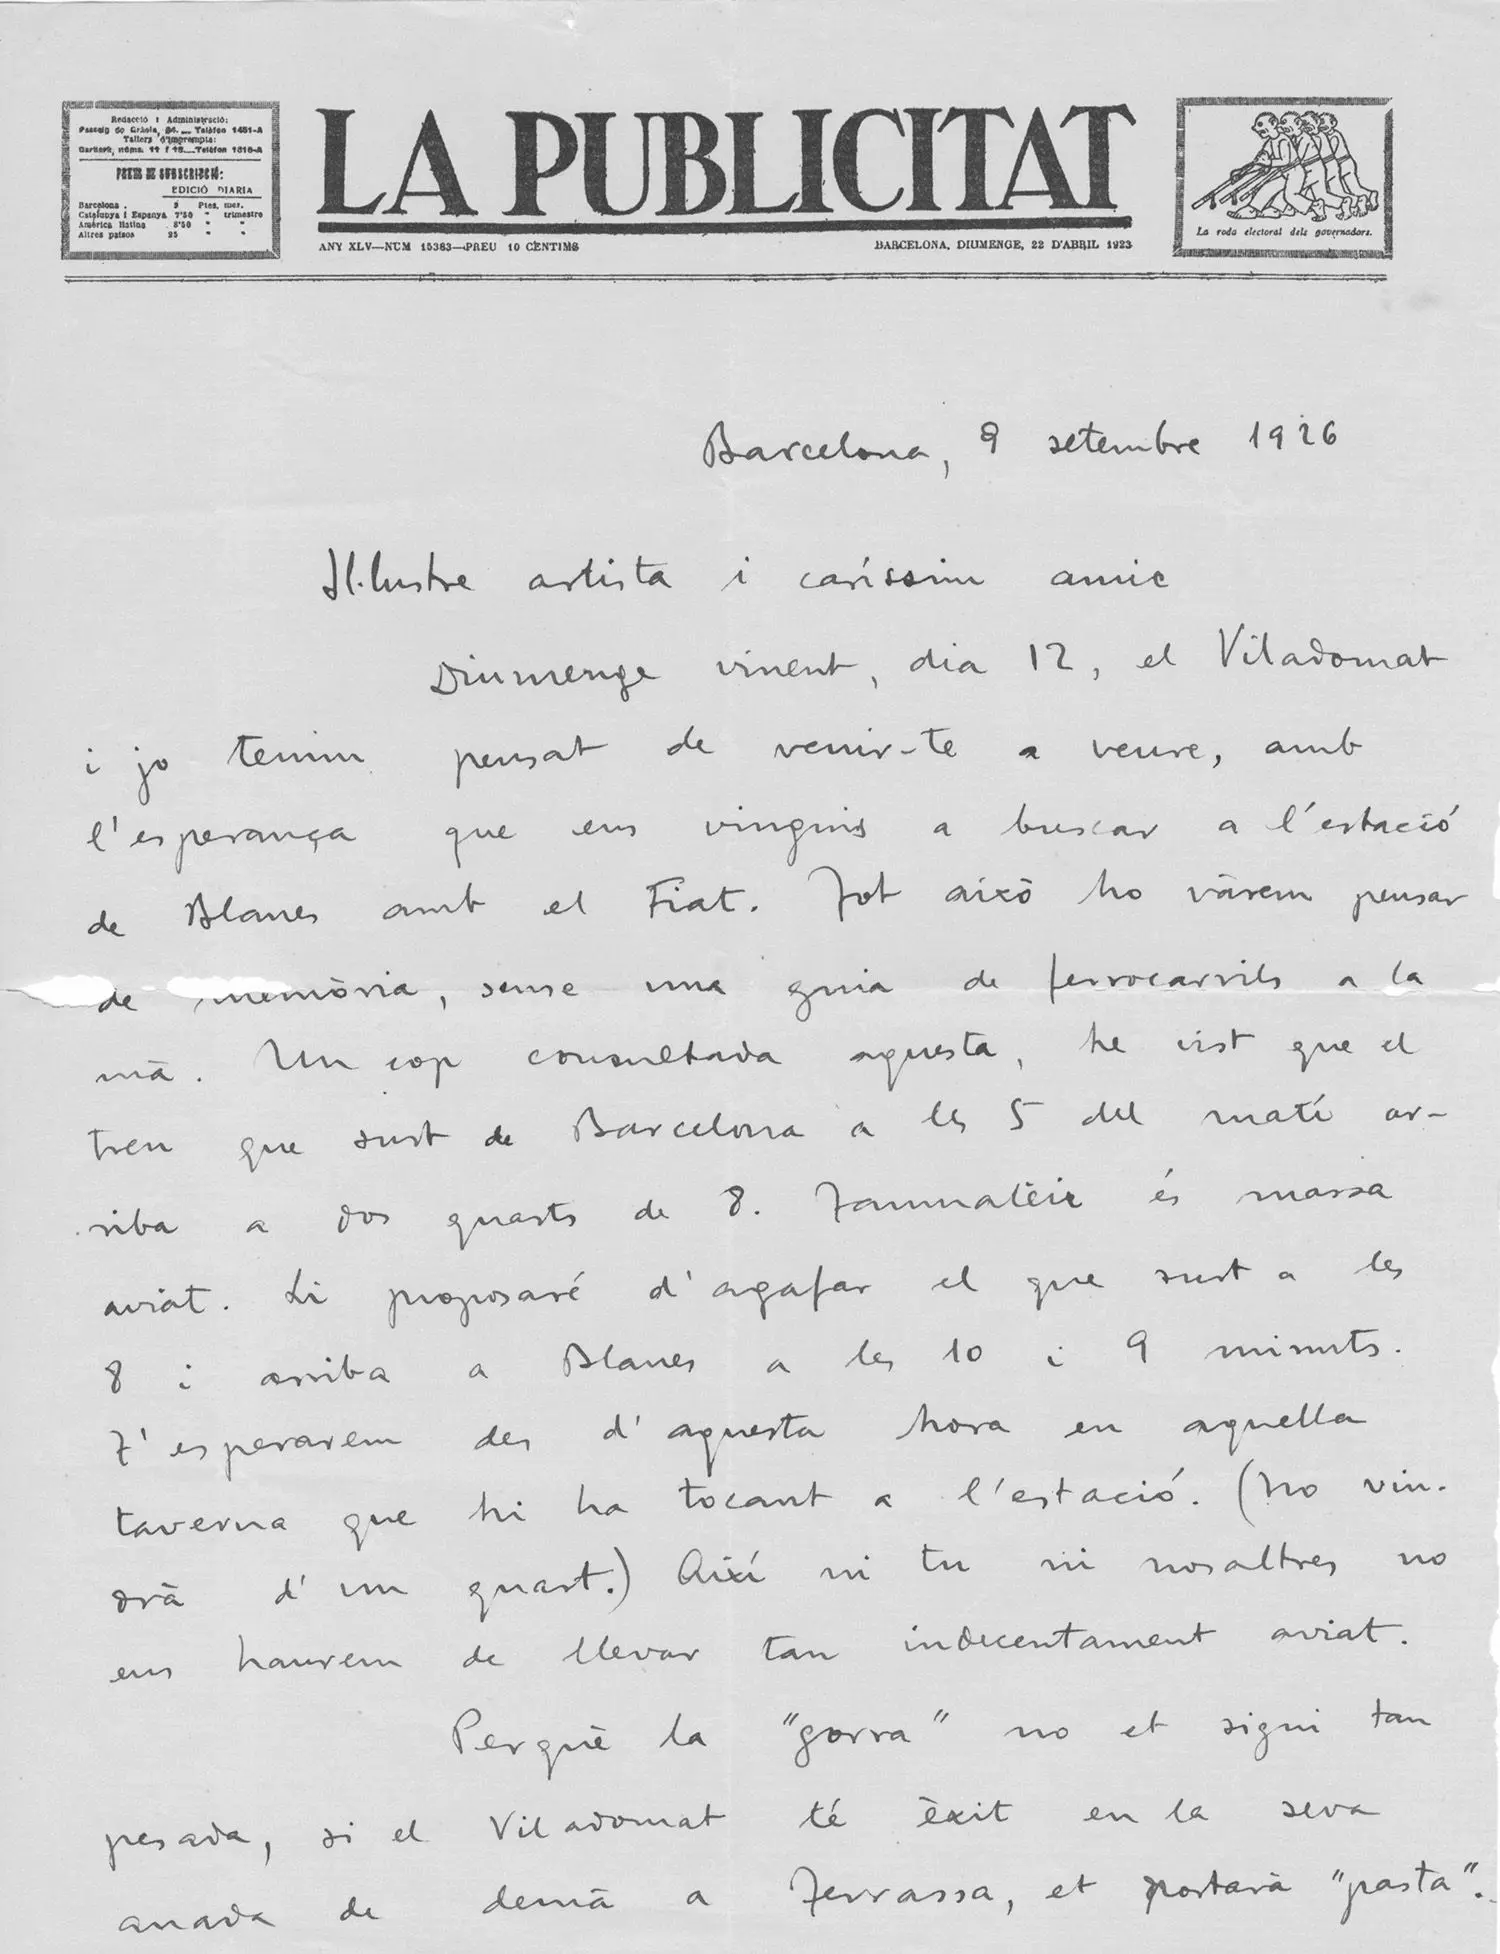 Redacció i Administració:
Passeig de Gràcia, 34. — Telèfon 1451-A
Tallers d'impremta:
Barbarà, núms. 11 i 13.—Telèfon 1318-A
PREU DE SUBSCRIPCIÓ:
EDICIÓ DIARIA
Barcelona . 2 Ptes. mes.
Catalunya i Espanya 7'50 " trimestre
Amèrica llatina 8'50 " "
Altres països 25 " "
LA PUBLICITAT
ANY XLV—NUM 15383—PREU 10 CENTIMS
BARCELONA, DIUMENGE, 22 D'ABRIL 1923
La roda electoral dels governadors.
Barcelona, 9 setembre 1926
Il·lustre artista i caríssim amic
Diumenge vinent, dia 12, el Viladomat
i jo tenim pensat de venir-te a veure, amb
l'esperança que ens vinguis a buscar a l'estació
de Blanes amb el Fiat. Tot això ho vàrem pensar
de memòria, sense una guia de ferrocarrils a la
mà. Un cop consultada aquesta, he vist que el
tren que surt de Barcelona a les 5 del matí ar-
riba a dos quarts de 8. Francament és massa
aviat. Li proposaré d'agafar el que surt a les
8 i arriba a Blanes a les 10 i 9 minuts.
T'esperarem des d'aquesta hora en aquella
taverna que hi ha tocant a l'estació. (No vin-
drà d'un quart.) Així ni tu ni nosaltres no
ens haurem de llevar tan indecentament aviat.
Perquè la "gorra" no et sigui tan
pesada, si el Viladomat té èxit en la seva
anada de demà a Terrassa, et portarà "pasta".